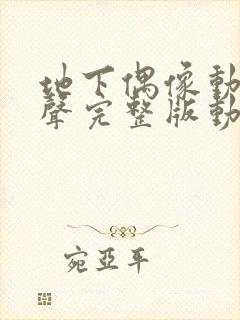 地下偶像動
聲完整版動
宛亞平